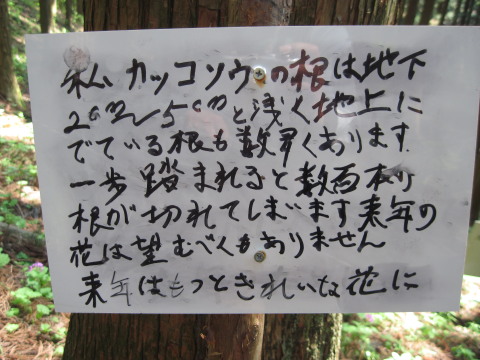 私、カッコソウの根は地下
2cm～5cmと浅く地上に
でている根も数多くあります
一歩踏まれると数百本の
根が切れてしまいます来年の
花は望むべくもありません
来年はもっときれいな花に